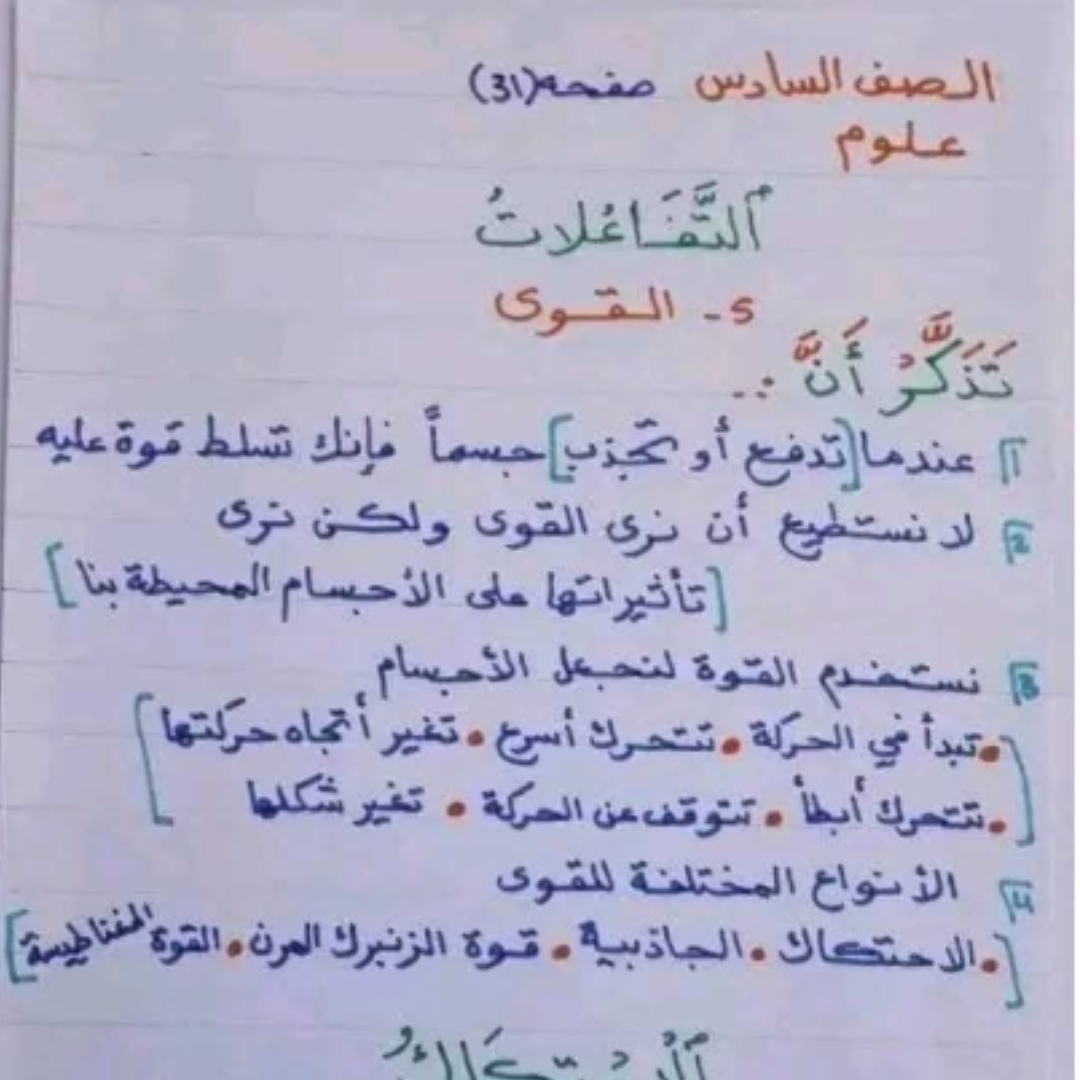 الصف السادس صفحه (31)
علوم
التَّفَاعُلاتُ
5- القوى
تَذَكَّرْ أَنَّ :..
1 عندما [تدفع أو تجذب] جسماً فإنك تسلط قوة عليه
2 لا نستطيع أن نرى القوى ولكن نرى
[تأثيراتها على الأجسام المحيطة بنا]
3 نستخدم القوة لنجعل الأجسام
[• تبدأ في الحركة • تتحرك أسرع • تغير أتجاه حركتها
• تتحرك أبطأ • تتوقف عن الحركة • تغير شكلها]
4 الأنواع المختلفة للقوى
[• الاحتكاك • الجاذبية • قوة الزنبرك المرن • القوة المغناطيسية]